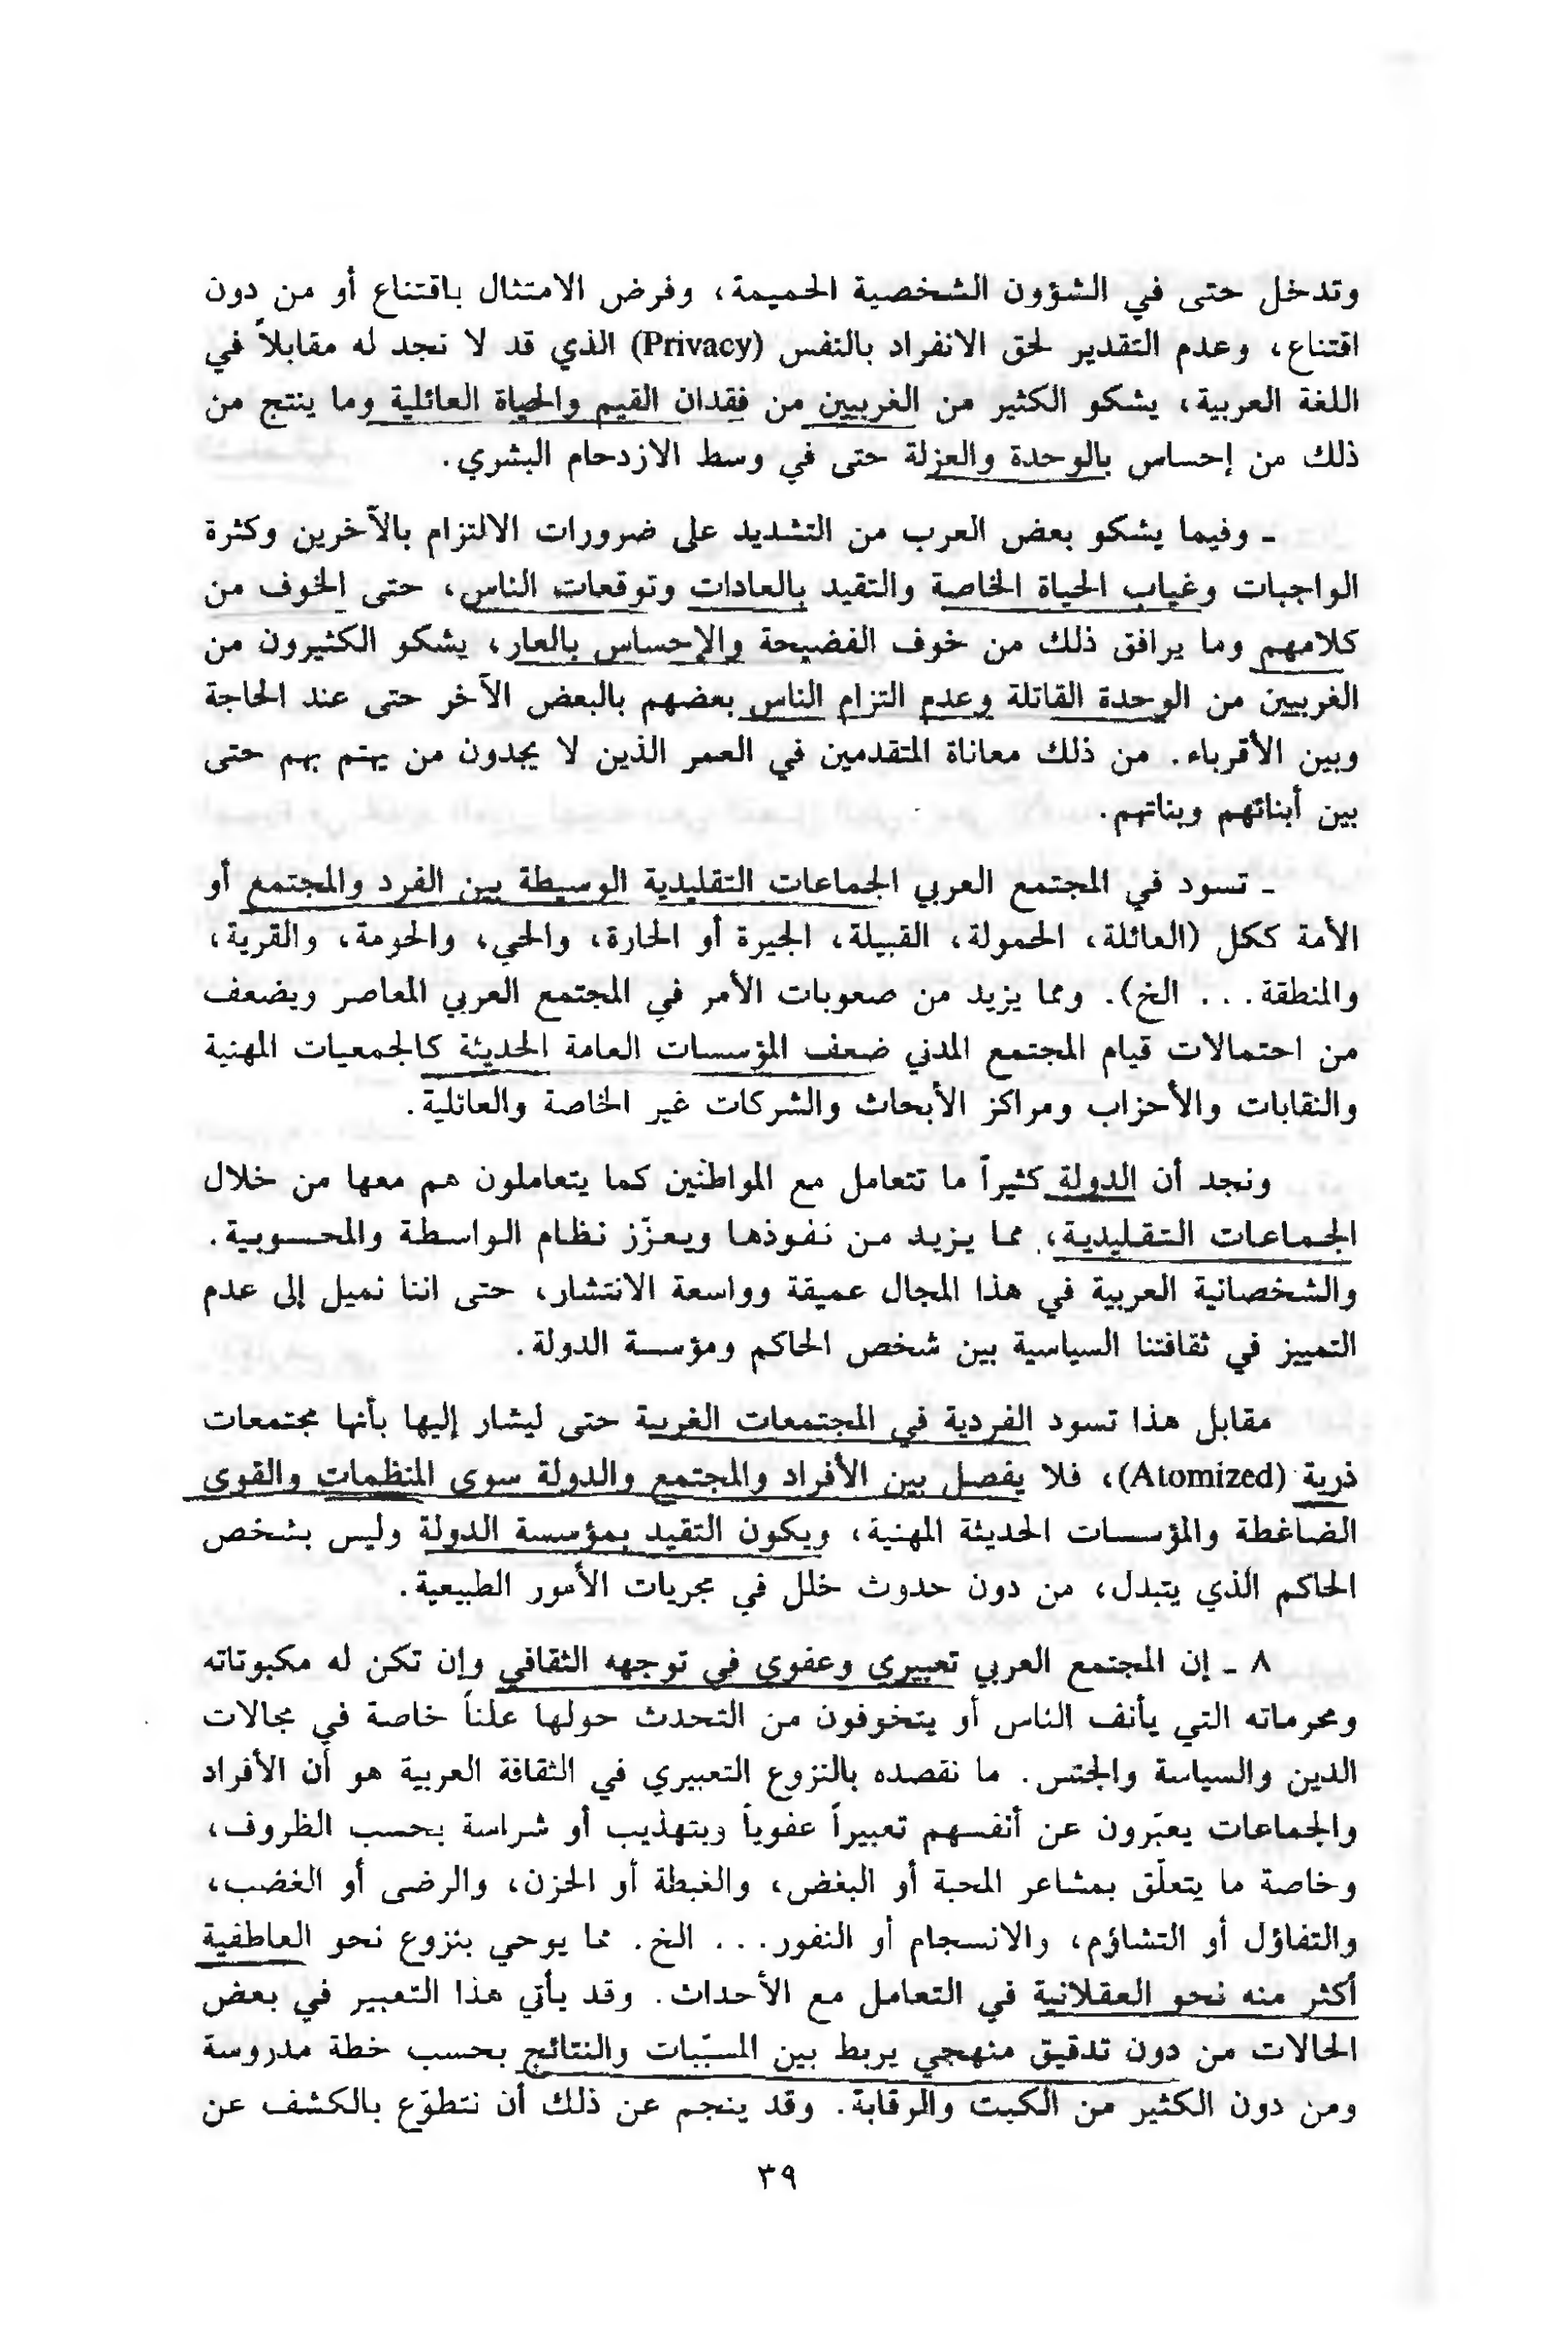 وتدخل حتى في الشؤون الشخصية الحميمة، وفرض الامتثال باقتناع أو من دون
اقتناع، وعدم التقدير لحق الانفراد بالنفس (Privacy) الذي قد لا نجد له مقابلاً في
اللغة العربية، يشكو الكثير من الغربيين من فقدان القيم والحياة العائلية وما ينتج من
ذلك من إحساس بالوحدة والعزلة حتى في وسط الازدحام البشري.
ـ وفيما يشكو بعض العرب من التشديد على ضرورات الالتزام بالآخرين وكثرة
الواجبات وغياب الحياة الخاصة والتقيد بالعادات وتوقعات الناس، حتى الخوف من
كلامهم وما يرافق ذلك من خوف الفضيحة والإحساس بالعار، يشكو الكثيرون من
الغربيين من الوحدة القاتلة وعدم التزام الناس بعضهم بالبعض الآخر حتى عند الحاجة
وبين الأقرباء. من ذلك معاناة المتقدمين في العمر الذين لا يجدون من يهتم بهم حتى
بين أبنائهم وبناتهم.
ـ تسود في المجتمع العربي الجماعات التقليدية الوسيطة بين الفرد والمجتمع أو
الأمة ككل (العائلة، الحمولة، القبيلة، الجيرة أو الحارة، والحي، والحومة، والقرية،
والمنطقة... الخ). ومما يزيد من صعوبات الأمر في المجتمع العربي المعاصر ويضعف
من احتمالات قيام المجتمع المدني ضعف المؤسسات العامة الحديثة كالجمعيات المهنية
والنقابات والأحزاب ومراكز الأبحاث والشركات غير الخاصة والعائلية.
ونجد أن الدولة كثيراً ما تتعامل مع المواطنين كما يتعاملون هم معها من خلال
الجماعات التقليدية، مما يزيد من نفوذها ويعزّز نظام الواسطة والمحسوبية.
والشخصانية العربية في هذا المجال عميقة وواسعة الانتشار، حتى اننا نميل إلى عدم
التمييز في ثقافتنا السياسية بين شخص الحاكم ومؤسسة الدولة.
مقابل هذا تسود الفردية في المجتمعات الغربية حتى ليشار إليها بأنها مجتمعات
ذرية (Atomized)، فلا يفصل بين الأفراد والمجتمع والدولة سوى المنظمات والقوى
الضاغطة والمؤسسات الحديثة المهنية، ويكون التقيد بمؤسسة الدولة وليس بشخص
الحاكم الذي يتبدل، من دون حدوث خلل في مجريات الأمور الطبيعية.
٨ ـ إن المجتمع العربي تعبيري وعفوي في توجهه الثقافي وإن تكن له مكبوتاته
ومحرماته التي يأنف الناس أو يتخوفون من التحدث حولها علناً خاصة في مجالات
الدين والسياسة والجنس. ما نقصده بالنزوع التعبيري في الثقافة العربية هو أن الأفراد
والجماعات يعبّرون عن أنفسهم تعبيراً عفوياً وبتهذيب أو شراسة بحسب الظروف،
وخاصة ما يتعلّق بمشاعر المحبة أو البغض، والغبطة أو الحزن، والرضى أو الغضب،
والتفاؤل أو التشاؤم، والانسجام أو النفور... الخ. مما يوحي بنزوع نحو العاطفية
أكثر منه نحو العقلانية في التعامل مع الأحداث. وقد يأتي هذا التعبير في بعض
الحالات من دون تدقيق منهجي يربط بين المسبّبات والنتائج بحسب خطة مدروسة
ومن دون الكثير من الكبت والرقابة. وقد ينجم عن ذلك أن نتطوّع بالكشف عن
٣٩